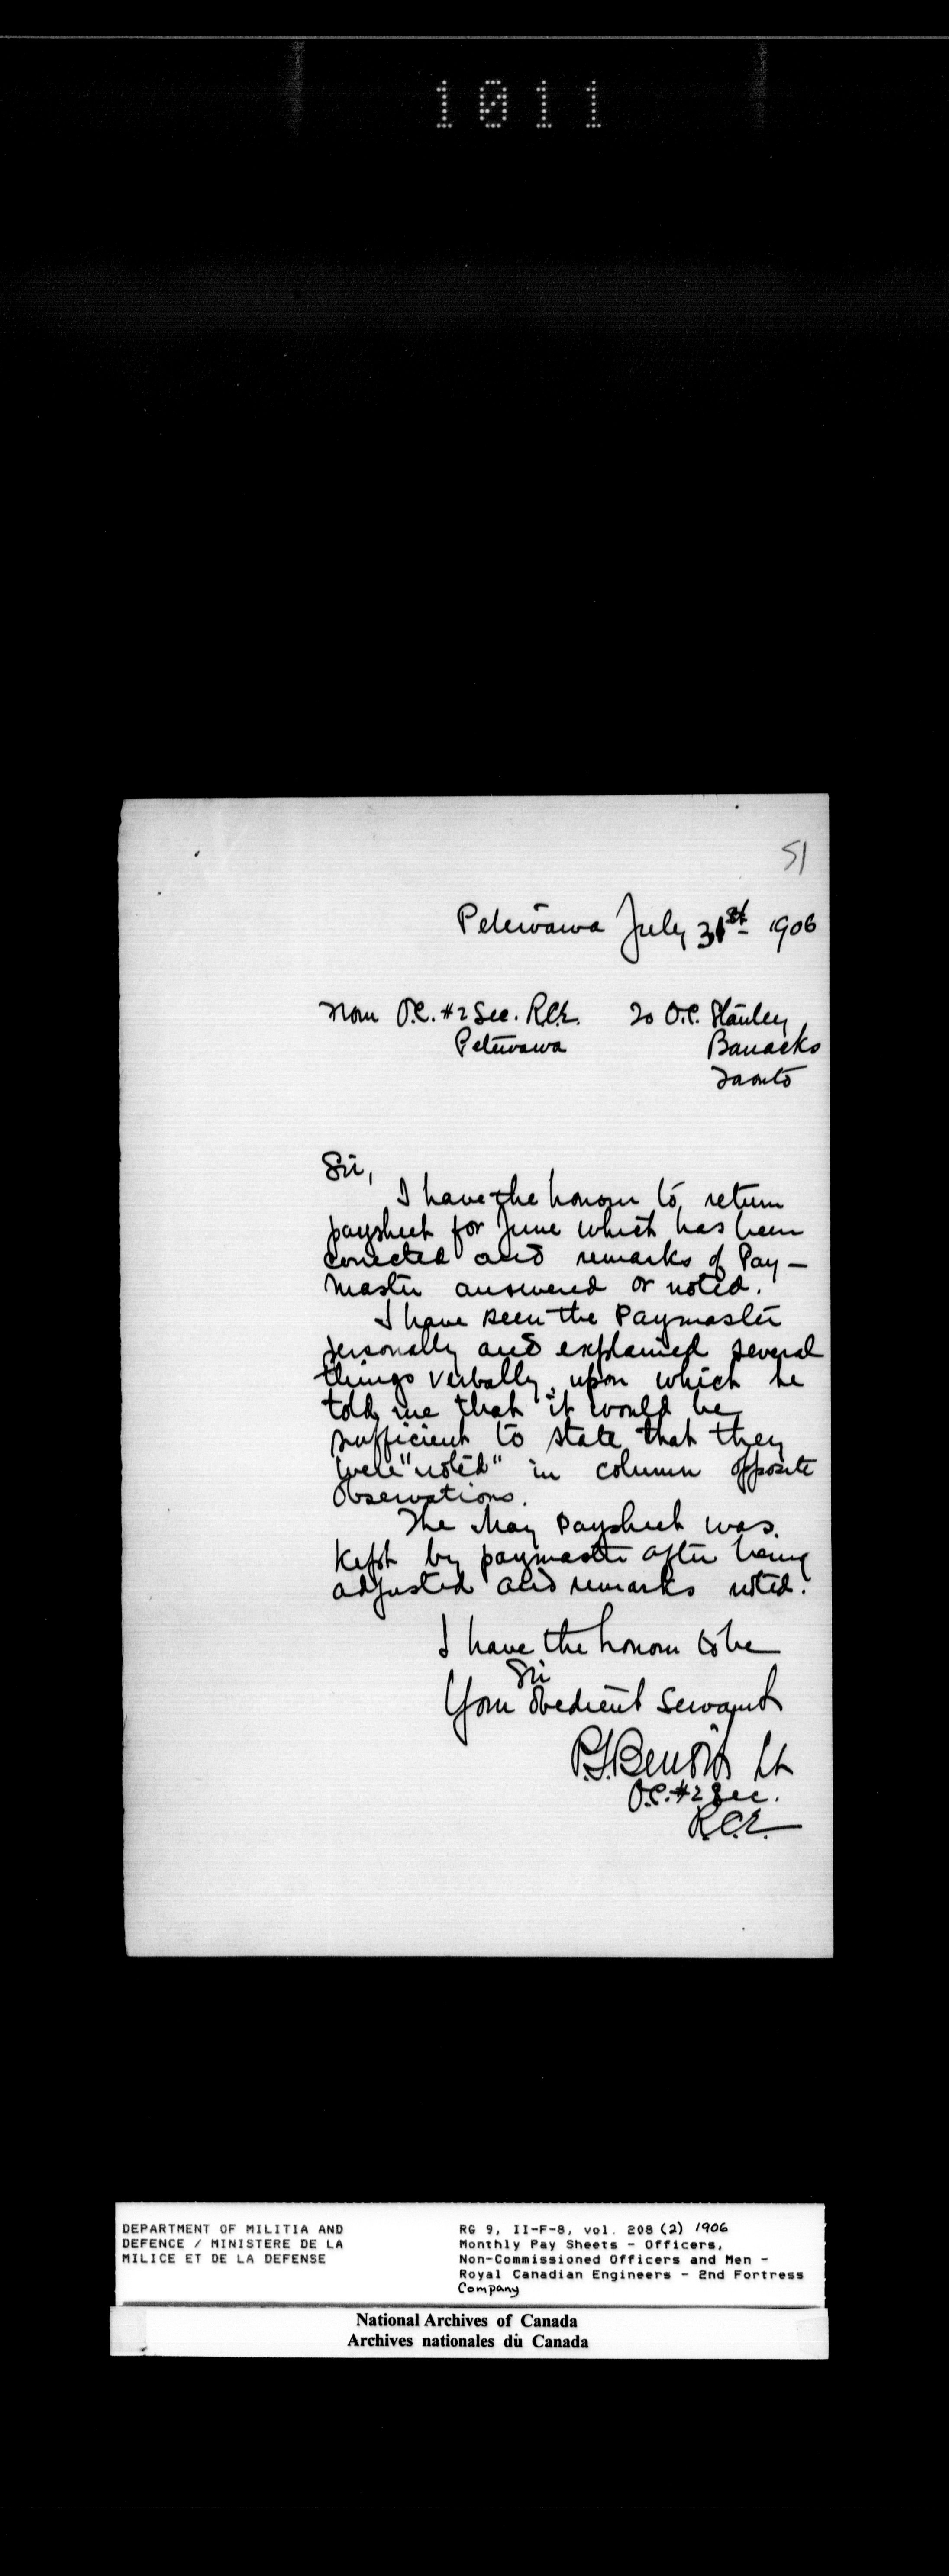 1011
51
Petewawa July 31st 1906
From O.C. #2 Sec. R.C.E. To O.C. Stanley
Petewawa Barracks
Toronto
Sir,
I have the honour to return
paysheet for June which has been
corrected and remarks of Pay-
master answered or noted.
I have seen the Paymaster
personally and explained several
things verbally, upon which he
told me that it would be
sufficient to state that they
were "noted" in column opposite
observations.
The May paysheet was
kept by paymaster after being
adjusted and remarks noted.
I have the honour to be
Sir
Your obedient servant
P.S. Benoit Lt
O.C. #2 Sec.
R.C.E.
DEPARTMENT OF MILITIA AND
DEFENCE / MINISTERE DE LA
MILICE ET DE LA DEFENSE
RG 9, II-F-8, vol. 208 (2) 1906
Monthly Pay Sheets - Officers,
Non-Commissioned Officers and Men -
Royal Canadian Engineers - 2nd Fortress
Company
National Archives of Canada
Archives nationales du Canada